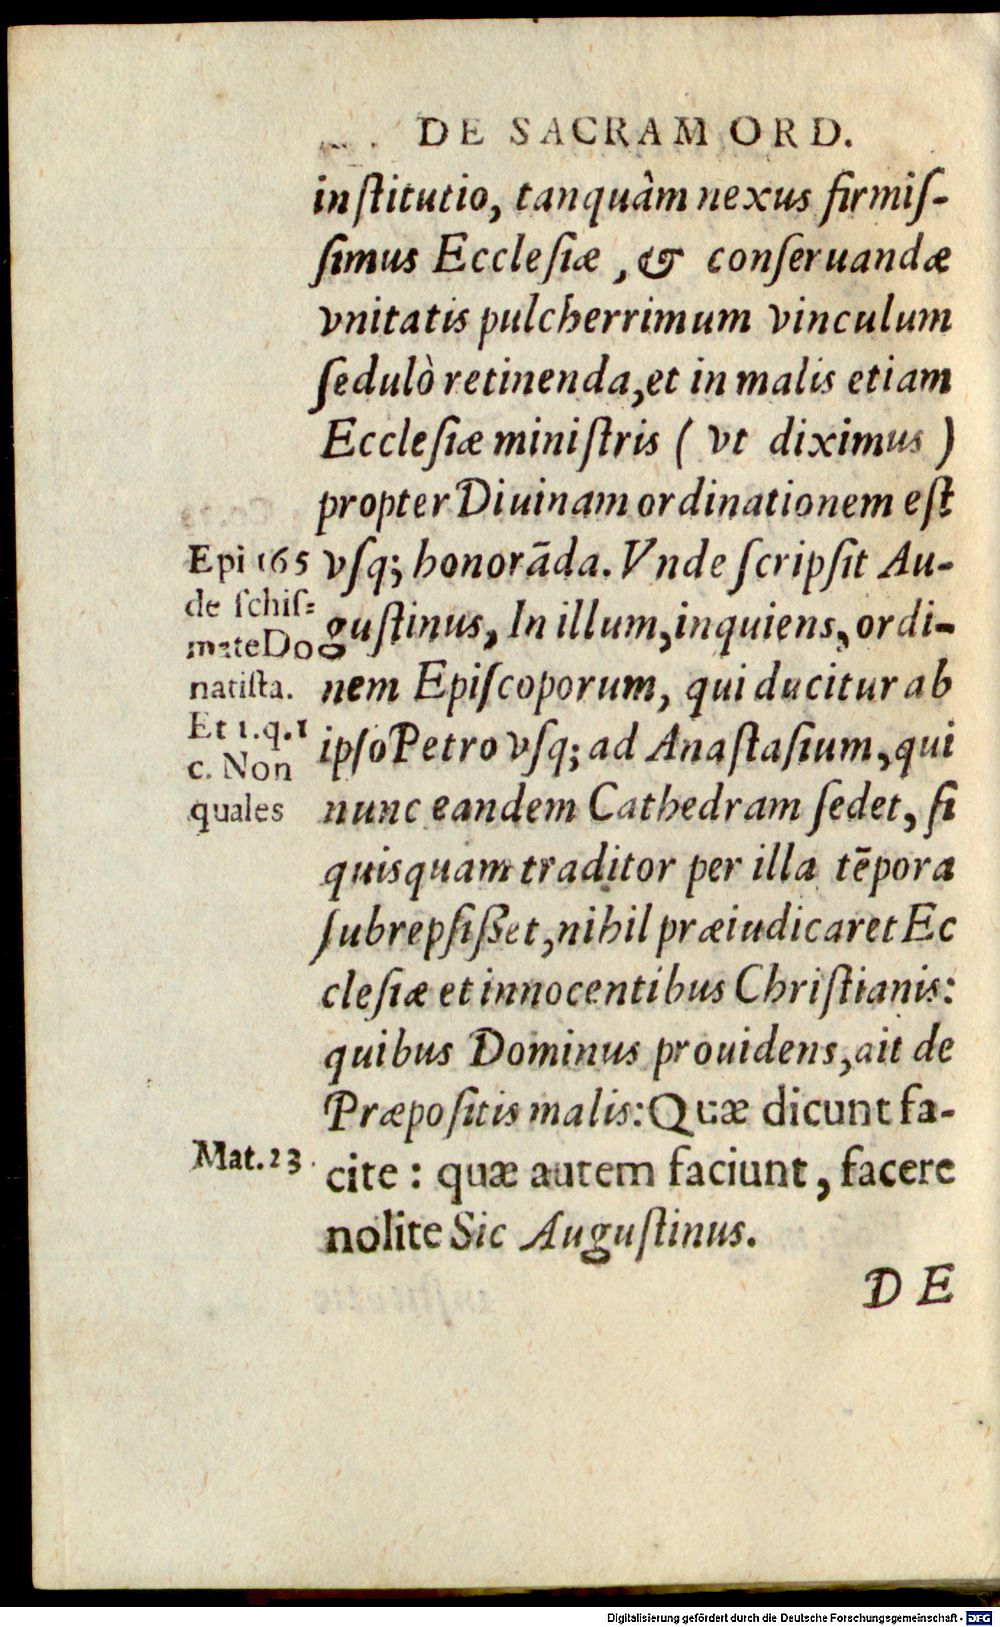 DE SACRAM ORD.
inſtitutio, tanquàm nexus firmiſ-
ſimus Eccleſiæ, & conſeruandæ
vnitatis pulcherrimum vinculum
ſedulò retinenda, et in malis etiam
Eccleſiæ miniſtris ( vt diximus )
propter Diuinam ordinationem eſt
vſq; honorãda. Vnde ſcripſit Au-
guſtinus, In illum, inquiens, ordi-
nem Epiſcoporum, qui ducitur ab
ipſo Petro vſq; ad Anaſtaſium, qui
nunc eandem Cathedram ſedet, ſi
quisquam traditor per illa tẽpora
ſubrepſiſſet, nihil præiudicaret Ec
cleſiæ et innocentibus Chriſtianis:
quibus Dominus prouidens, ait de
Præpoſitis malis: Quæ dicunt fa-
cite : quæ autem faciunt, facere
nolite Sic Auguſtinus.
DE
Epi 165
de ſchiſ=
mate Do
natiſta.
Et 1.q.1
c. Non
quales
Mat.23.
Digitalisierung gefördert durch die Deutsche Forschungsgemeinschaft - DFG